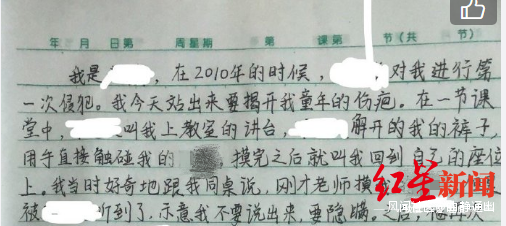 年 月 日第 周星期 第 课第 节(共 节)
我是 ,在2010年的时候, 对我进行第
一次侵犯。我今天站出来要揭开我童年的伤疤。在一节课
堂中, 叫我上教室的讲台, 解开的我的裤子,
用手直接触碰我的 摸完之后就叫我回到自己的座位
上。我当时好奇地跟我同桌说,刚才老师摸我
红星新闻
被 听到了,示意我不要说出来,要隐瞒。